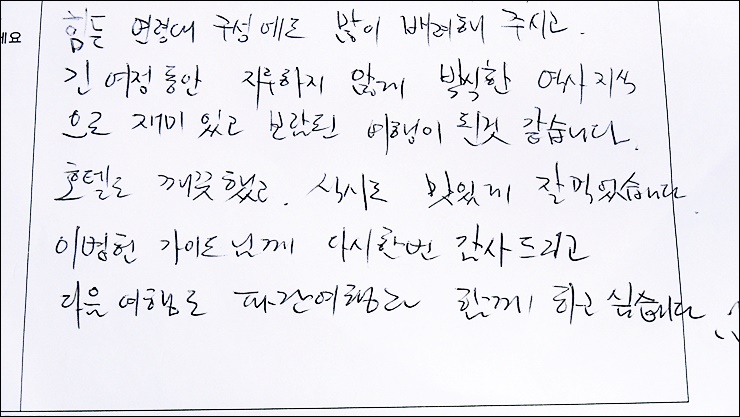 세요
힘든 연령대 구성에도 많이 배려해 주시고.
긴 여정 동안 지루하지 않게 박식한 역사 지식
으로 재미 있고 보람된 여행이 된것 같습니다.
호텔도 깨끗했고. 식사도 맛있게 잘먹었습니다
이범헌 가이드님께 다시한번 감사드리고
다음 여행도 파란여행과 함께 하고 싶습니다